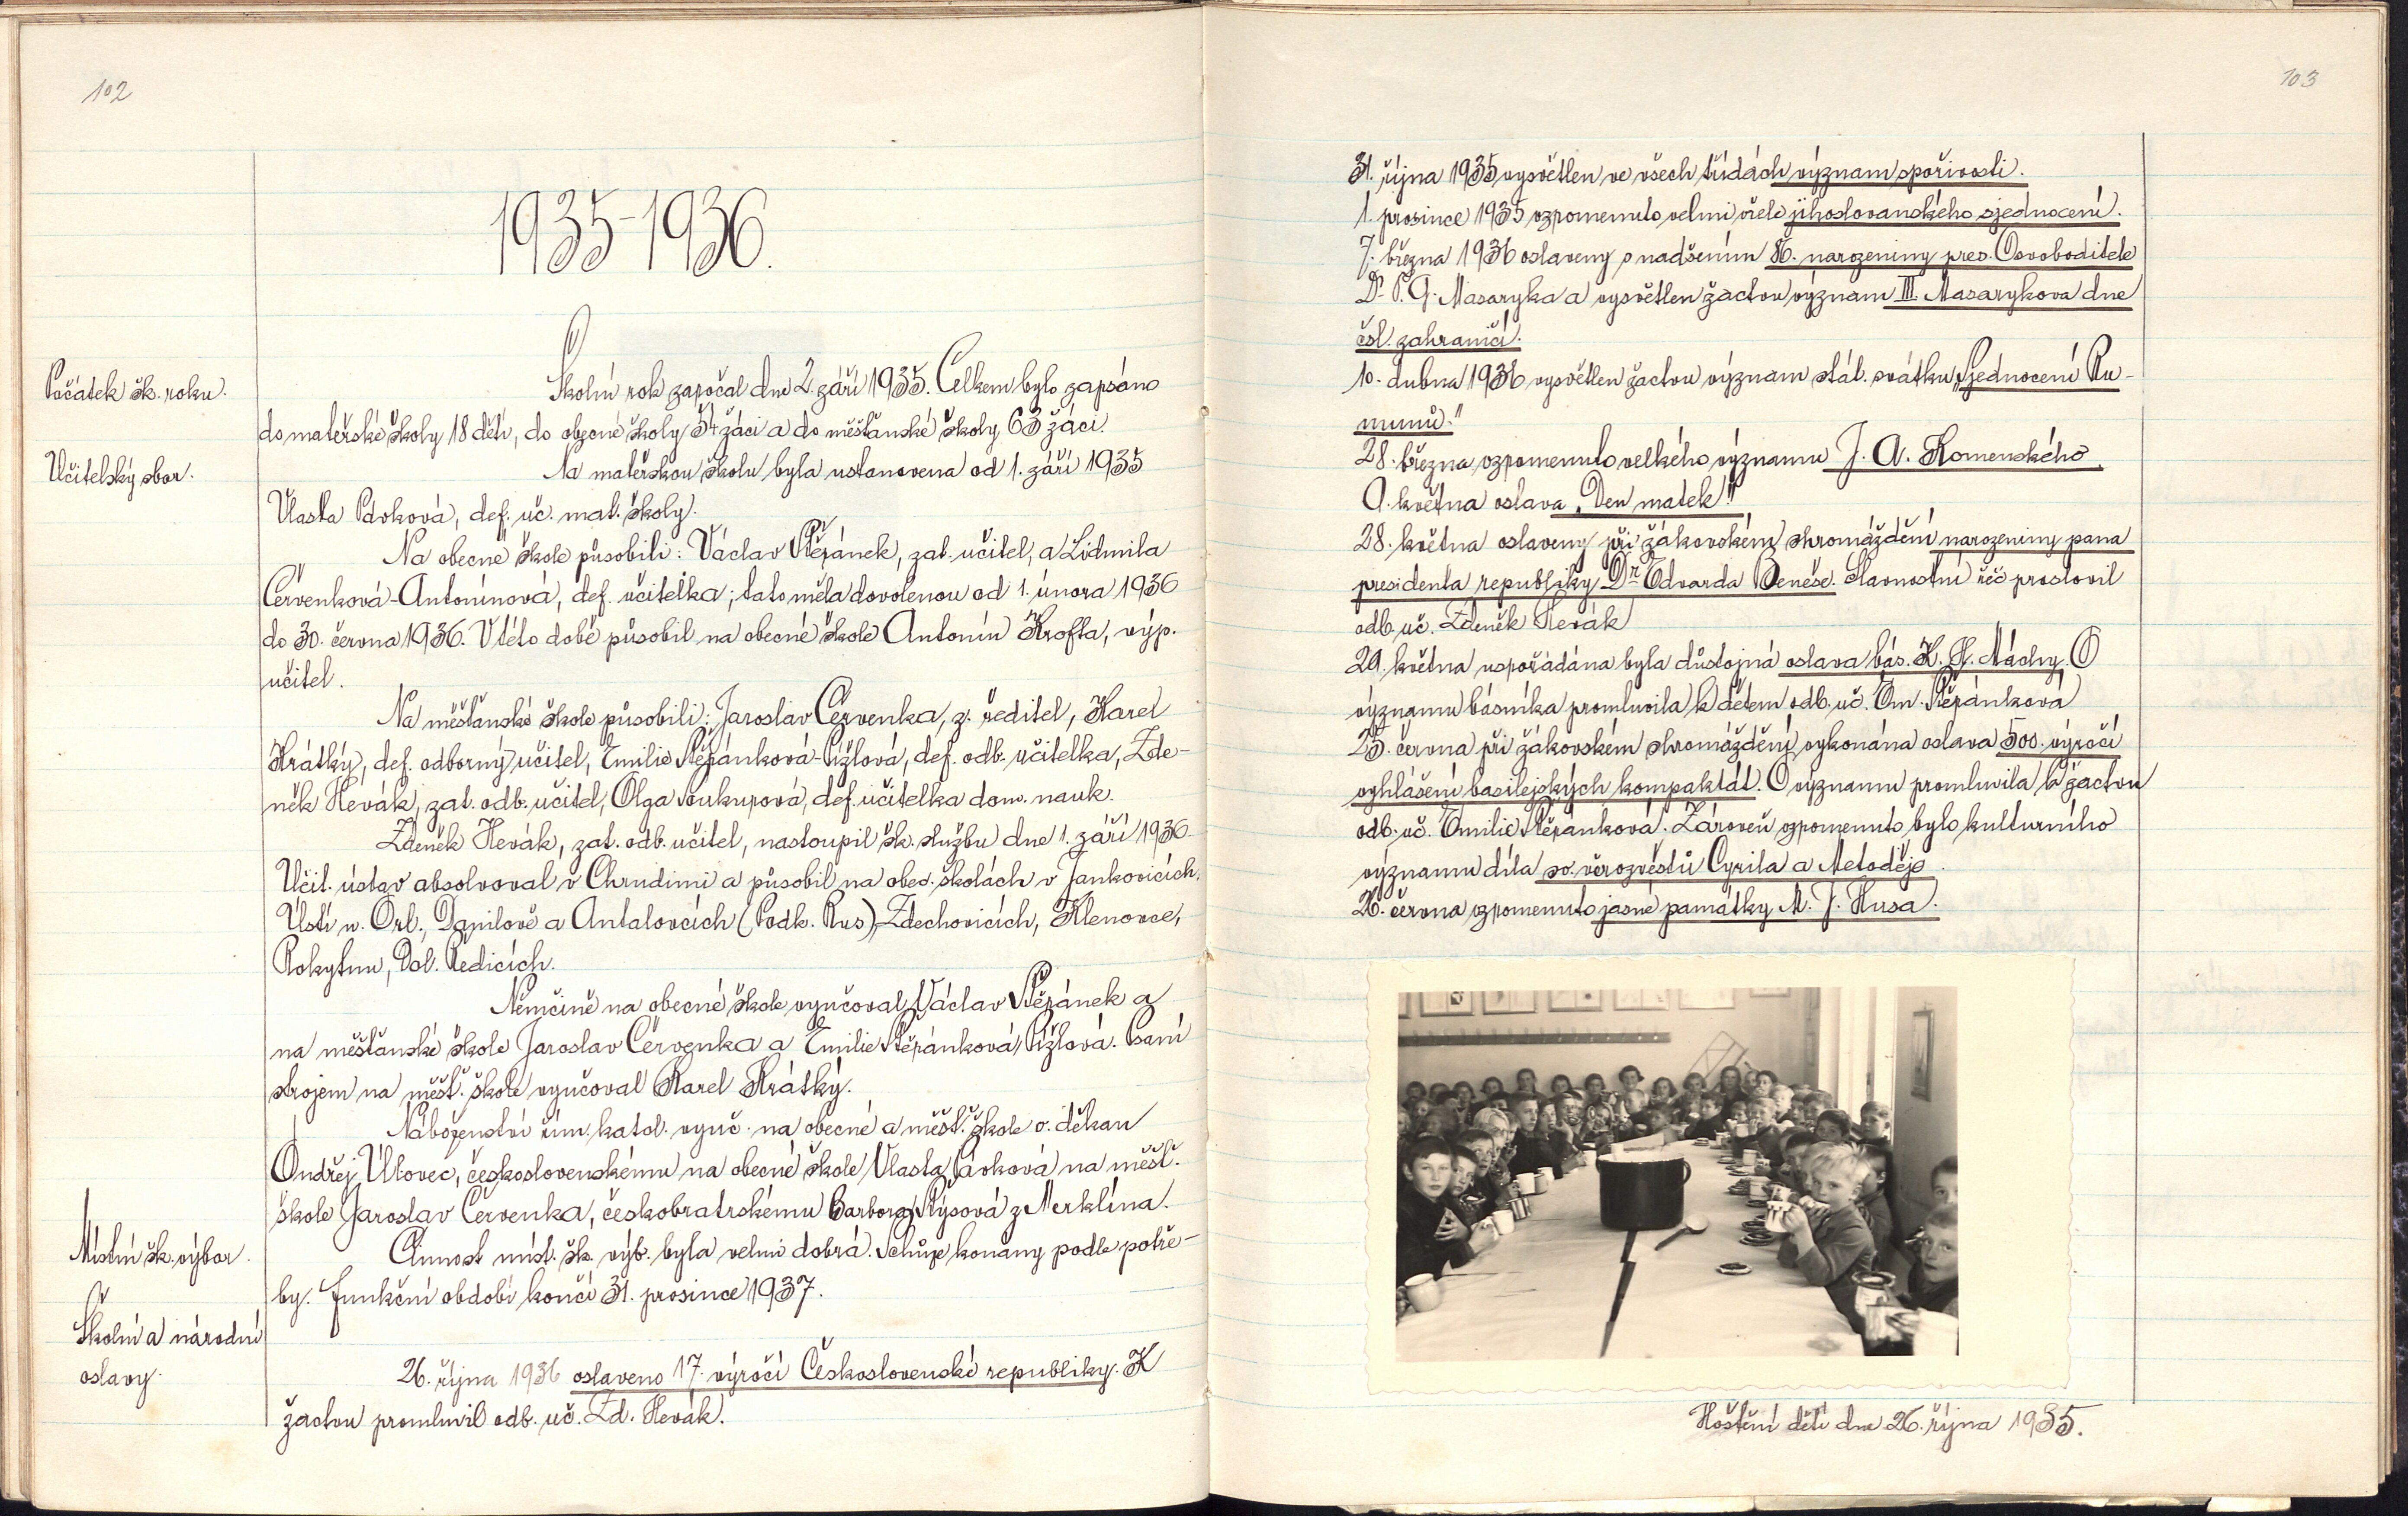 102
1935-1936.
Počátek šk. roku.
Školní rok započal dne 2. září 1935. Celkem bylo zapsáno
do mateřské školy 18 dětí, do obecné školy 54 žáci a do měšťanské školy 63 žáci.
Učitelský sbor.
Na mateřskou školu byla ustanovena od 1. září 1935
Vlasta Pávková, def. uč. mat. školy.
Na obecné škole působili: Václav Štěpánek, zat. učitel, a Lidmila
Červenková-Antonínová, def. učitelka; tato měla dovolenou od 1. února 1936
do 30. června 1936. V této době působil na obecné škole Antonín Krofta, výp.
učitel.
Na měšťanské škole působili: Jaroslav Červenka, z. ředitel, Karel
Krátký, def. odborný učitel, Emilie Štěpánková-Pižlová, def. odb. učitelka, Zde-
něk Hevák, zat. odb. učitel, Olga Soukupová, def. učitelka dom. nauk.
Zdeněk Hevák, zat. odb. učitel, nastoupil šk. službu dne 1. září 1936.
Učit. ústav absolvoval v Chrudimi a působil na obec. školách v Jankovicích,
Ústí n. Orl., Danilově a Antalovcích (Podk. Rus), Zdechovicích, Klenovce,
Rokytnu, Dol. Ředicích.
Němčině na obecné škole vyučoval Václav Štěpánek a
na měšťanské škole Jaroslav Červenka a Emilie Štěpánková Pižlová. Psaní
strojem na měšť. škole vyučoval Karel Krátký.
Náboženství řím. katol. vyuč. na obecné a měšť. škole o. děkan
Ondřej Úlovec, československému na obecné škole Vlasta Pávková na měšť.
škole Jaroslav Červenka, českobratrskému Barbora Rýsová z Merklína.
Místní šk. výbor.
Činnost míst. šk. výb. byla velmi dobrá. Schůze konány podle potře-
by. Funkční období končí 31. prosince 1937.
Školní a národní
oslavy.
26. října 1936 oslaveno 17. výročí Československé republiky. K
žactvu promluvil odb. uč. Zd. Hevák.
103
31. října 1935 vysvětlen ve všech třídách význam spořivosti.
1. prosince 1935 vzpomenuto velmi vřele jihoslovanského sjednocení.
7. března 1936 oslaveny s nadšením 86. narozeniny pres. Osvoboditele
Dr. T. G. Masaryka a vysvětlen žactvu význam III. Masarykova dne
čsl. zahraničí.
10. dubna 1936 vysvětlen žactvu význam stát. svátku „Sjednocení Ru-
munů."
28. března vzpomenuto velkého významu J. A. Komenského.
9. května oslava „Den matek".
28. května oslaveny při žákovském shromáždění narozeniny pana
presidenta republiky Dra Edvarda Beneše. Slavnostní řeč proslovil
odb. uč. Zdeněk Hevák
29. května uspořádána byla důstojná oslava bás. K. H. Máchy. O
významu básníka promluvila k dětem odb. uč. Em. Štěpánková
25. června při žákovském shromáždění vykonána oslava 500. výročí
vyhlášení basilejských kompaktát. O významu promluvila k žactvu
odb. uč. Emilie Štěpánková. Zároveň vzpomenuto bylo kulturního
významu díla sv. věrozvěstů Cyrila a Metoděje.
26. června vzpomenuto jasné památky M. J. Husa.
Hoštění dětí dne 26. října 1935.